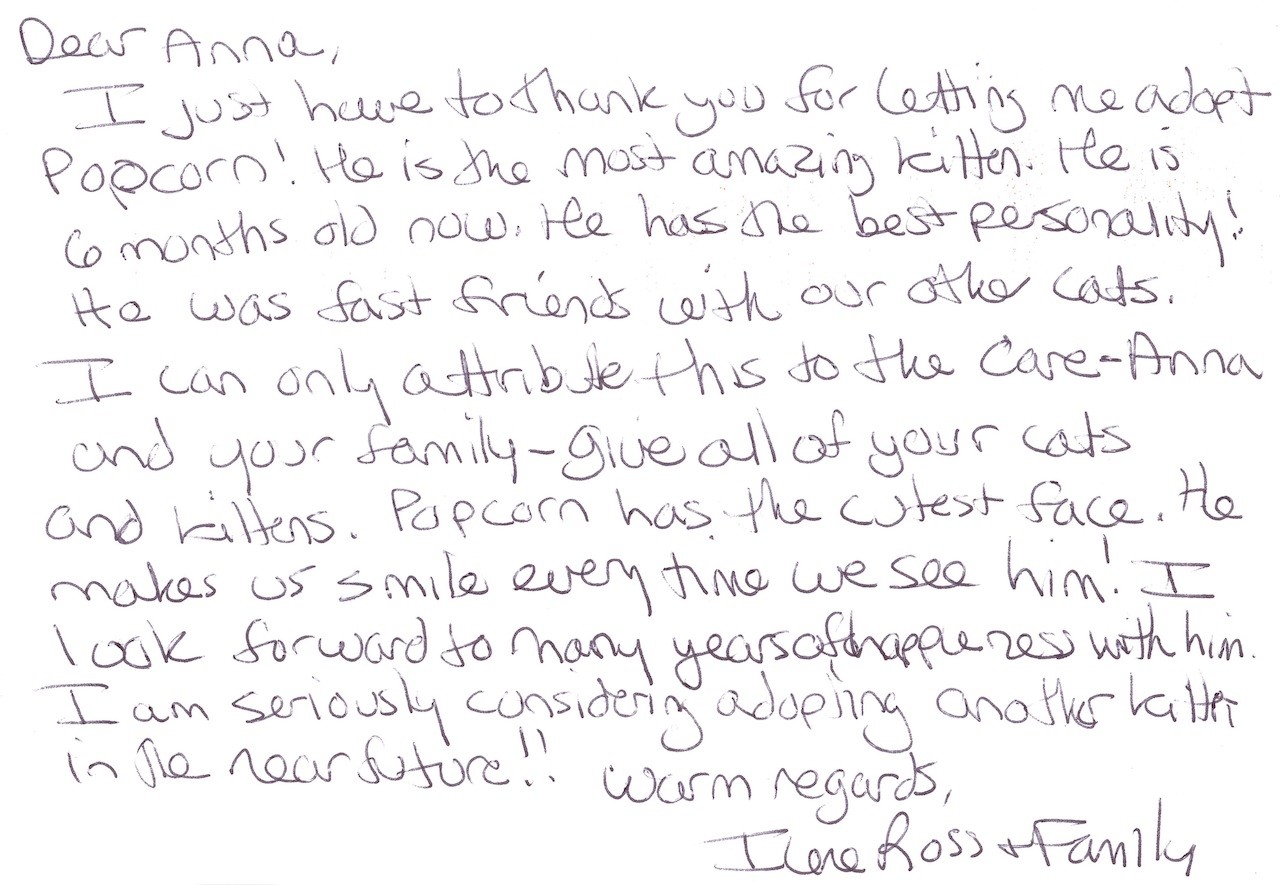 Dear Anna,
I just have to thank you for letting me adopt
Popcorn! He is the most amazing kitten. He is
6 months old now. He has the best personality!
He was fast friends with our other cats.
I can only attribute this to the care-Anna
and your family-give all of your cats
and kittens. Popcorn has the cutest face. He
makes us smile every time we see him! I
look forward to many years of happieness with him.
I am seriously considering adopting another kitten
in the near future!! warm regards,
Ilene Ross + Family